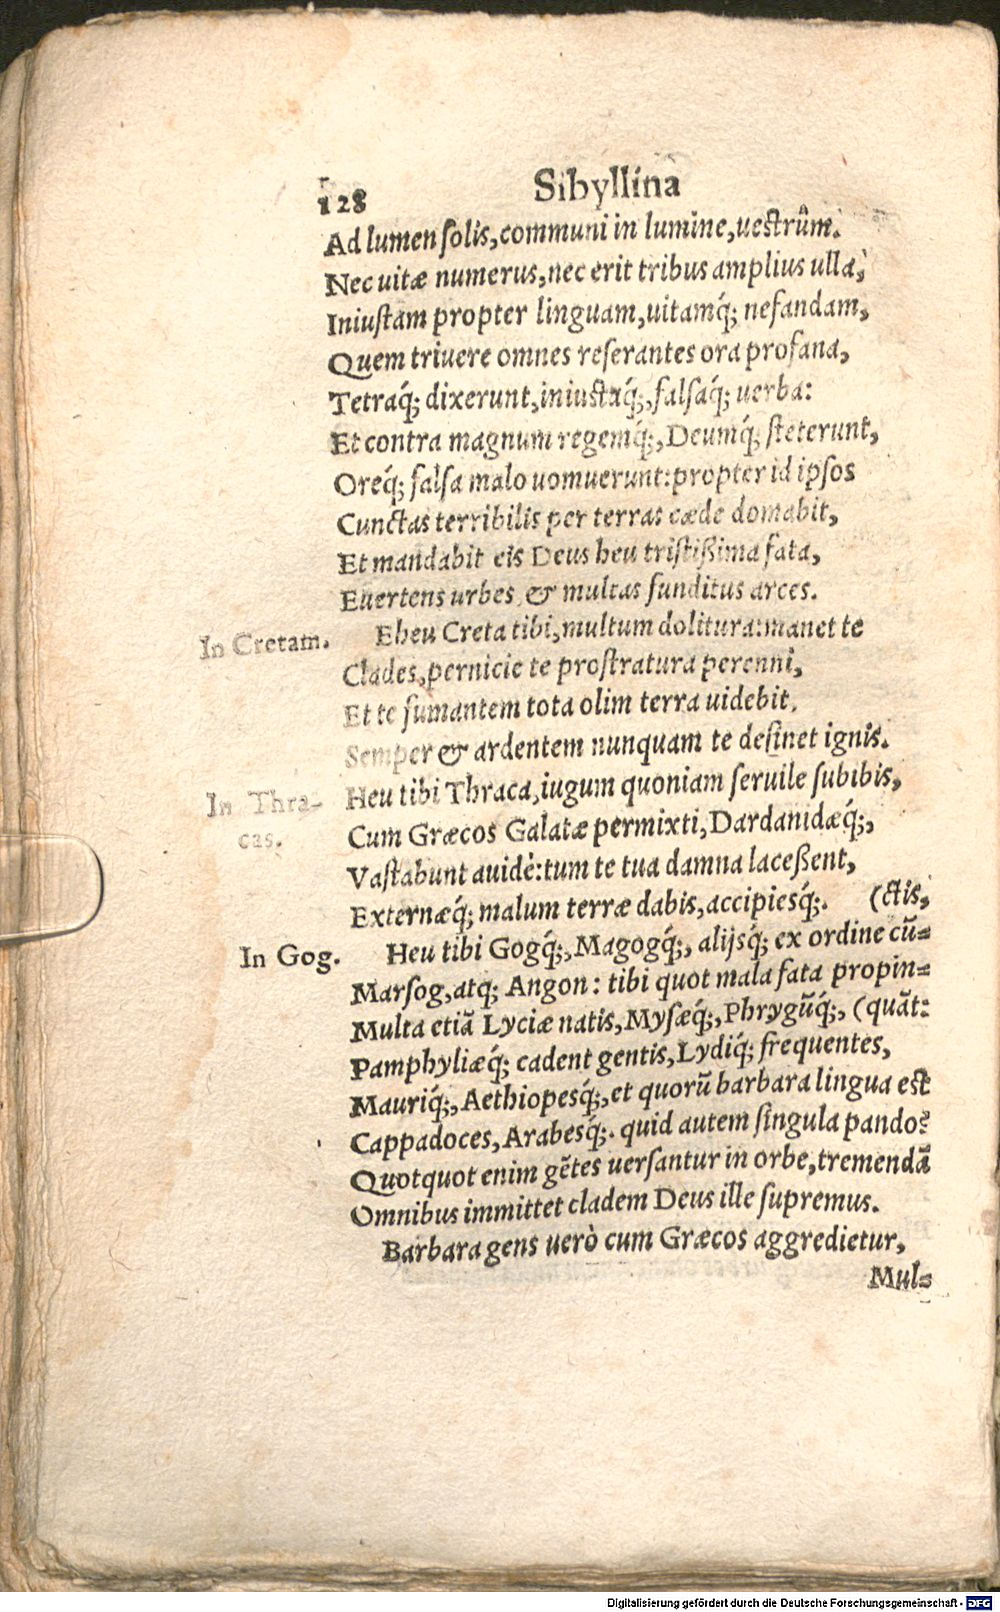 128 Sibyllina
Ad lumen solis, communi in lumine, uestrûm.
Nec uitæ numerus, nec erit tribus amplius ulla,
Iniustam propter linguam, uitamq́; nefandam,
Quem triuere omnes reserantes ora profana,
Tetraq́; dixerunt, iniustaq́;, falsaq́; uerba:
Et contra magnum regemq́;, Deumq́; steterunt,
Oreq́; falsa malo uomuerunt: propter id ipsos
Cunctas terribilis per terras cæde domabit,
Et mandabit eis Deus heu tristißima fata,
Euertens urbes, & multas funditus arces.
In Cretam. Eheu Creta tibi, multum dolitura: manet te
Clades, pernicie te prostratura perenni,
Et te fumantem tota olim terra uidebit,
Semper & ardentem nunquam te desinet ignis.
In Thra- Heu tibi Thraca, iugum quoniam seruile subibis,
cas. Cum Græcos Galatæ permixti, Dardanidæq́;,
Vastabunt auidè: tum te tua damna laceßent,
Externæq́; malum terræ dabis, accipiesq́;. (ctis,
In Gog. Heu tibi Gogq́;, Magogq́;, alijsq́; ex ordine cū-
Marsog, atq; Angon: tibi quot mala fata propin-
Multa etiā Lyciæ natis, Mysæq́;, Phrygūq́;, (quāt:
Pamphyliæq́; cadent gentis, Lydiq́; frequentes,
Mauriq́;, Aethiopesq́;, et quorū barbara lingua est
Cappadoces, Arabesq́;. quid autem singula pando?
Quotquot enim gētes uersantur in orbe, tremendā
Omnibus immittet cladem Deus ille supremus.
Barbara gens uerò cum Græcos aggredietur,
Mul-
Digitalisierung gefördert durch die Deutsche Forschungsgemeinschaft - DFG